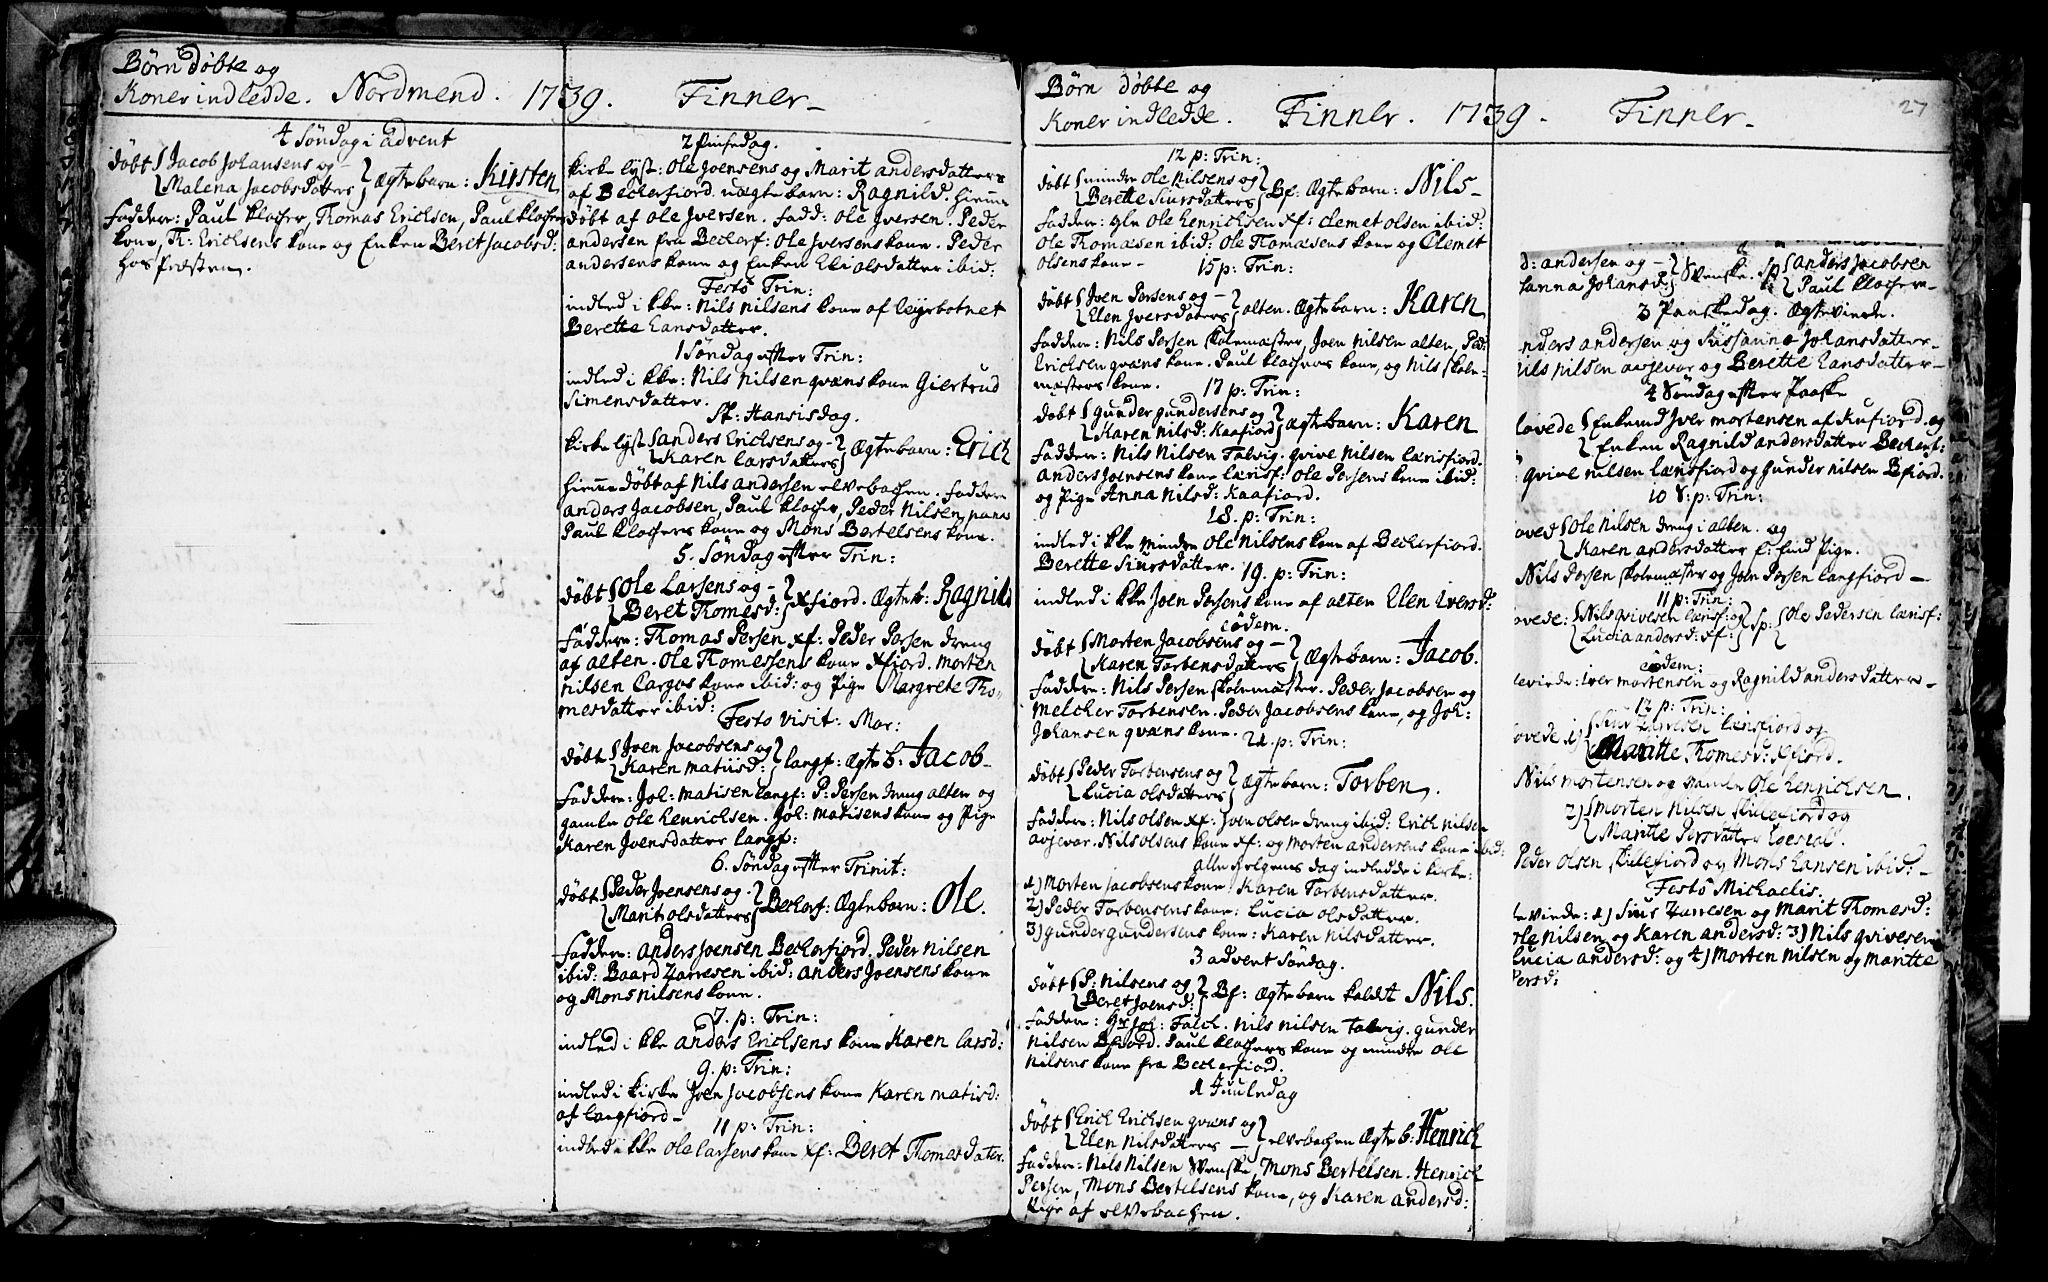 Børn døbte og
Koner indledde. Nordmend. 1739.
4 Søndag i Advent
døbt Jacob Johansens og
Malena Jacobsdatters Ægte barn: Kirsten
faddere: Paul Klocher, Thomas Erichsen, Paul Klochers
kone, Th: Erichsens kone og Enken Beret Jacobsd:
hos Præsten.
Finner
2 Pinsedag.
kirke lyst: Ole Joensens og Marit andersdatters
af Beckerfiord. uægte barn: Ragnild. hieme
døbt af Ole Iversen. fadd: Ole Iversen. Peder
andersen fra Beckerf: Ole Iversens kone. Peder
andersens kone og Enken Eli olsdatter ibid:
Festo Trin:
indled i kke: Nils Nilsens kone af leyrbotnet
Berette Hansdatter.
1 Søndag efter Trin:
indled i kke: Nils Nilsen qvæns kone Giertrud
Simensdatter.
St: Hansisdag.
kirke lyst anders Erichsens og
Karen Larsdatters Ægte barn: Erich
hieme døbt af Nils andersen elvebachen. faddere
anders Jacobsen, Paul Klocher, Peder Nilsen,
Paul Klochers kone og Mons Bertelsens kone.
5. Søndag efter Trin:
døbt Ole Larsens og
Beret Thomesd: xfiord. Ægte b: Ragnild
faddere: Thomas Persen xf: Peder Persen dreng
af alten. Ole Thomessens kone xfiord. morten
nilsen Largos kone ibid: og Pige Margrete Tho-
mesdatter ibid:
Festo visit: Mar:
døbt Joen Jacobsens og
Karen matiisd: langf: Ægte b: Jacob
faddere: Joh: matisen langf: P: Persen dreng alten og
gamle Ole Henrichsen. Joh: matisens kone og Pige
Karen Joensdatter langf:
6. Søndag efter Trinit:
døbt Peder Joensens og
Marit Olsdatters Beckerf: Ægte barn: Ole.
faddere: anders Joensen Beckerfiord. Peder Nilsen
ibid: Baard Zarresen ibid: anders Joensens kone
og Mons Nilsens kone.
7. p: Trin:
indled i kke anders Erichsens kone Karen larsd:
9. p: Trin:
indled i kirke Joen Jacobsens kone Karen matisd:
af langfiord
11 p: Trin:
indled i kke Ole larsens kone xf: Beret Thomesdater.
Børn døbte og
Koner indledde. Finner. 1739.
12 p: Trin:
døbt mindre Ole Nilsens og
Berette Siursdatters Bf: Ægte barn: Nils
faddere: Ole Henrichsen xf: Clemet olsen ibid:
Ole Thomæsen ibid: Ole Thomæsens kone og Clemet
olsens kone
15 p: Trin:
døbt Joen Persens og
Elen Iversdatters alten. Ægte barn: Karen
faddere: Nils Persen skolemæster, Joen Nilsen alten, Ped:
Erichsen qvæns kone. Paul Klochers kone, og Nils skole-
mæsters kone.
17 p: Trin:
døbt gunder gundersens og
Karen Nilsd: Kaafiord Ægte barn: Karen
faddere: Nils Nilsen Talvig. qvive Nilsen lærisfiord.
anders Joensens kone lærisf: Ole Persens kone ibid:
og Pige Anna Nilsd: Kaafiord.
18. p: Trin:
indled i kke mindre Ole Nilsens kone af Beckerfiord.
Berette Siursdatter.
19. p: Trin:
indled i kke Joen Persens kone af alten Elen Iversd:
eodem.
døbt Morten Jacobsens og
Karen Torbensdatters Ægte barn: Jacob.
faddere: Nils Persen skolemæster. Peder Jacobsen og
Melcher Torbensen. Peder Jacobsens kone, og Joh:
Johansen qvæns kone.
21. p: Trin:
døbt Peder Torbensens og
Lucia olsdatters Ægte barn: Torben.
faddere: Nils olsen xf: Iven olsen dreng ibid: Erich nilsen
avjevar. Nils olsens kone xf: og morten andersens kone ibid:
alle helgenes dag indledde i kirke:
1) Morten Jacobsens kone: Karen Torbensdatter.
2) Peder Torbensens kone: Lucia olsdatter.
3) gunder gundersens kone: Karen Nilsdatter.
3 advent Søndag.
døbt P: Nilsens og
Beret Joensd: Bf: Ægte barn kaldet Nils.
faddere: Joh: Falch. Nils Nilsen talvig. gunder
Nilsen Bfiord. Paul Klochers kone og mindre Ole
Nilsens kone fra Beckerfiord.
1 Juuledag
døbt Erich Erichsen qvæns og
Elen Nilsdatters elvebachen Ægte b: Henrich
faddere: Nils Nilsen Svenske, Mons Bertelsen. Henrich
Persen, Mons Bertelsens kone, og Karen andersd:
Pige af elvebachen.
Finner.
27
d: andersen og
anna Johansd: Svenske. sp: anders Jacobsen
Paul Klocher
3 Paaskedag. Ægtevirde.
nders andersen og Sussanna Johansdatter
Nils Nilsen avjevar og Berette Hansdatter
4 Søndag efter Paaske
lovede Enkemd Iver mortensen af Kufiord og
Enken Ragnild andersdatter Beckerf:
qvive nilsen lærisfiord og gunder nilsen Bfiord.
10 S: p: Trin:
oved Ole Nilsen dreng i alten. og
Karen andersdatter Pige.
Nils Persen skolemæster og Joen Persen langfiord
11 p: Trin:
ovede: Nils qvivesen lærisf: og
Lucia andersd: xf: sp: Ole Pedersen lærisf:
eodem:
evirde: Iver mortensen og Ragnild andersdatter
12 p: Trin:
ovede 1) Siur Zarresen lærisfiord og
Maritte Thomesd: xfiord.
Nils mortensen og gamle Ole Henrichsen.
2) morten Nilsen skillefiord og
Maritte Persdatter
Peder olsen skillefiord og Mons Hansen ibid:
Festo Michaelis.
evirde: 1) Siur Zarresen og Marit Thomesd:
ole Nilsen og Karen andersd: 3) Nils qvivesen
Lucia andersd: og 4) Morten Nilsen og Maritte
Persd: